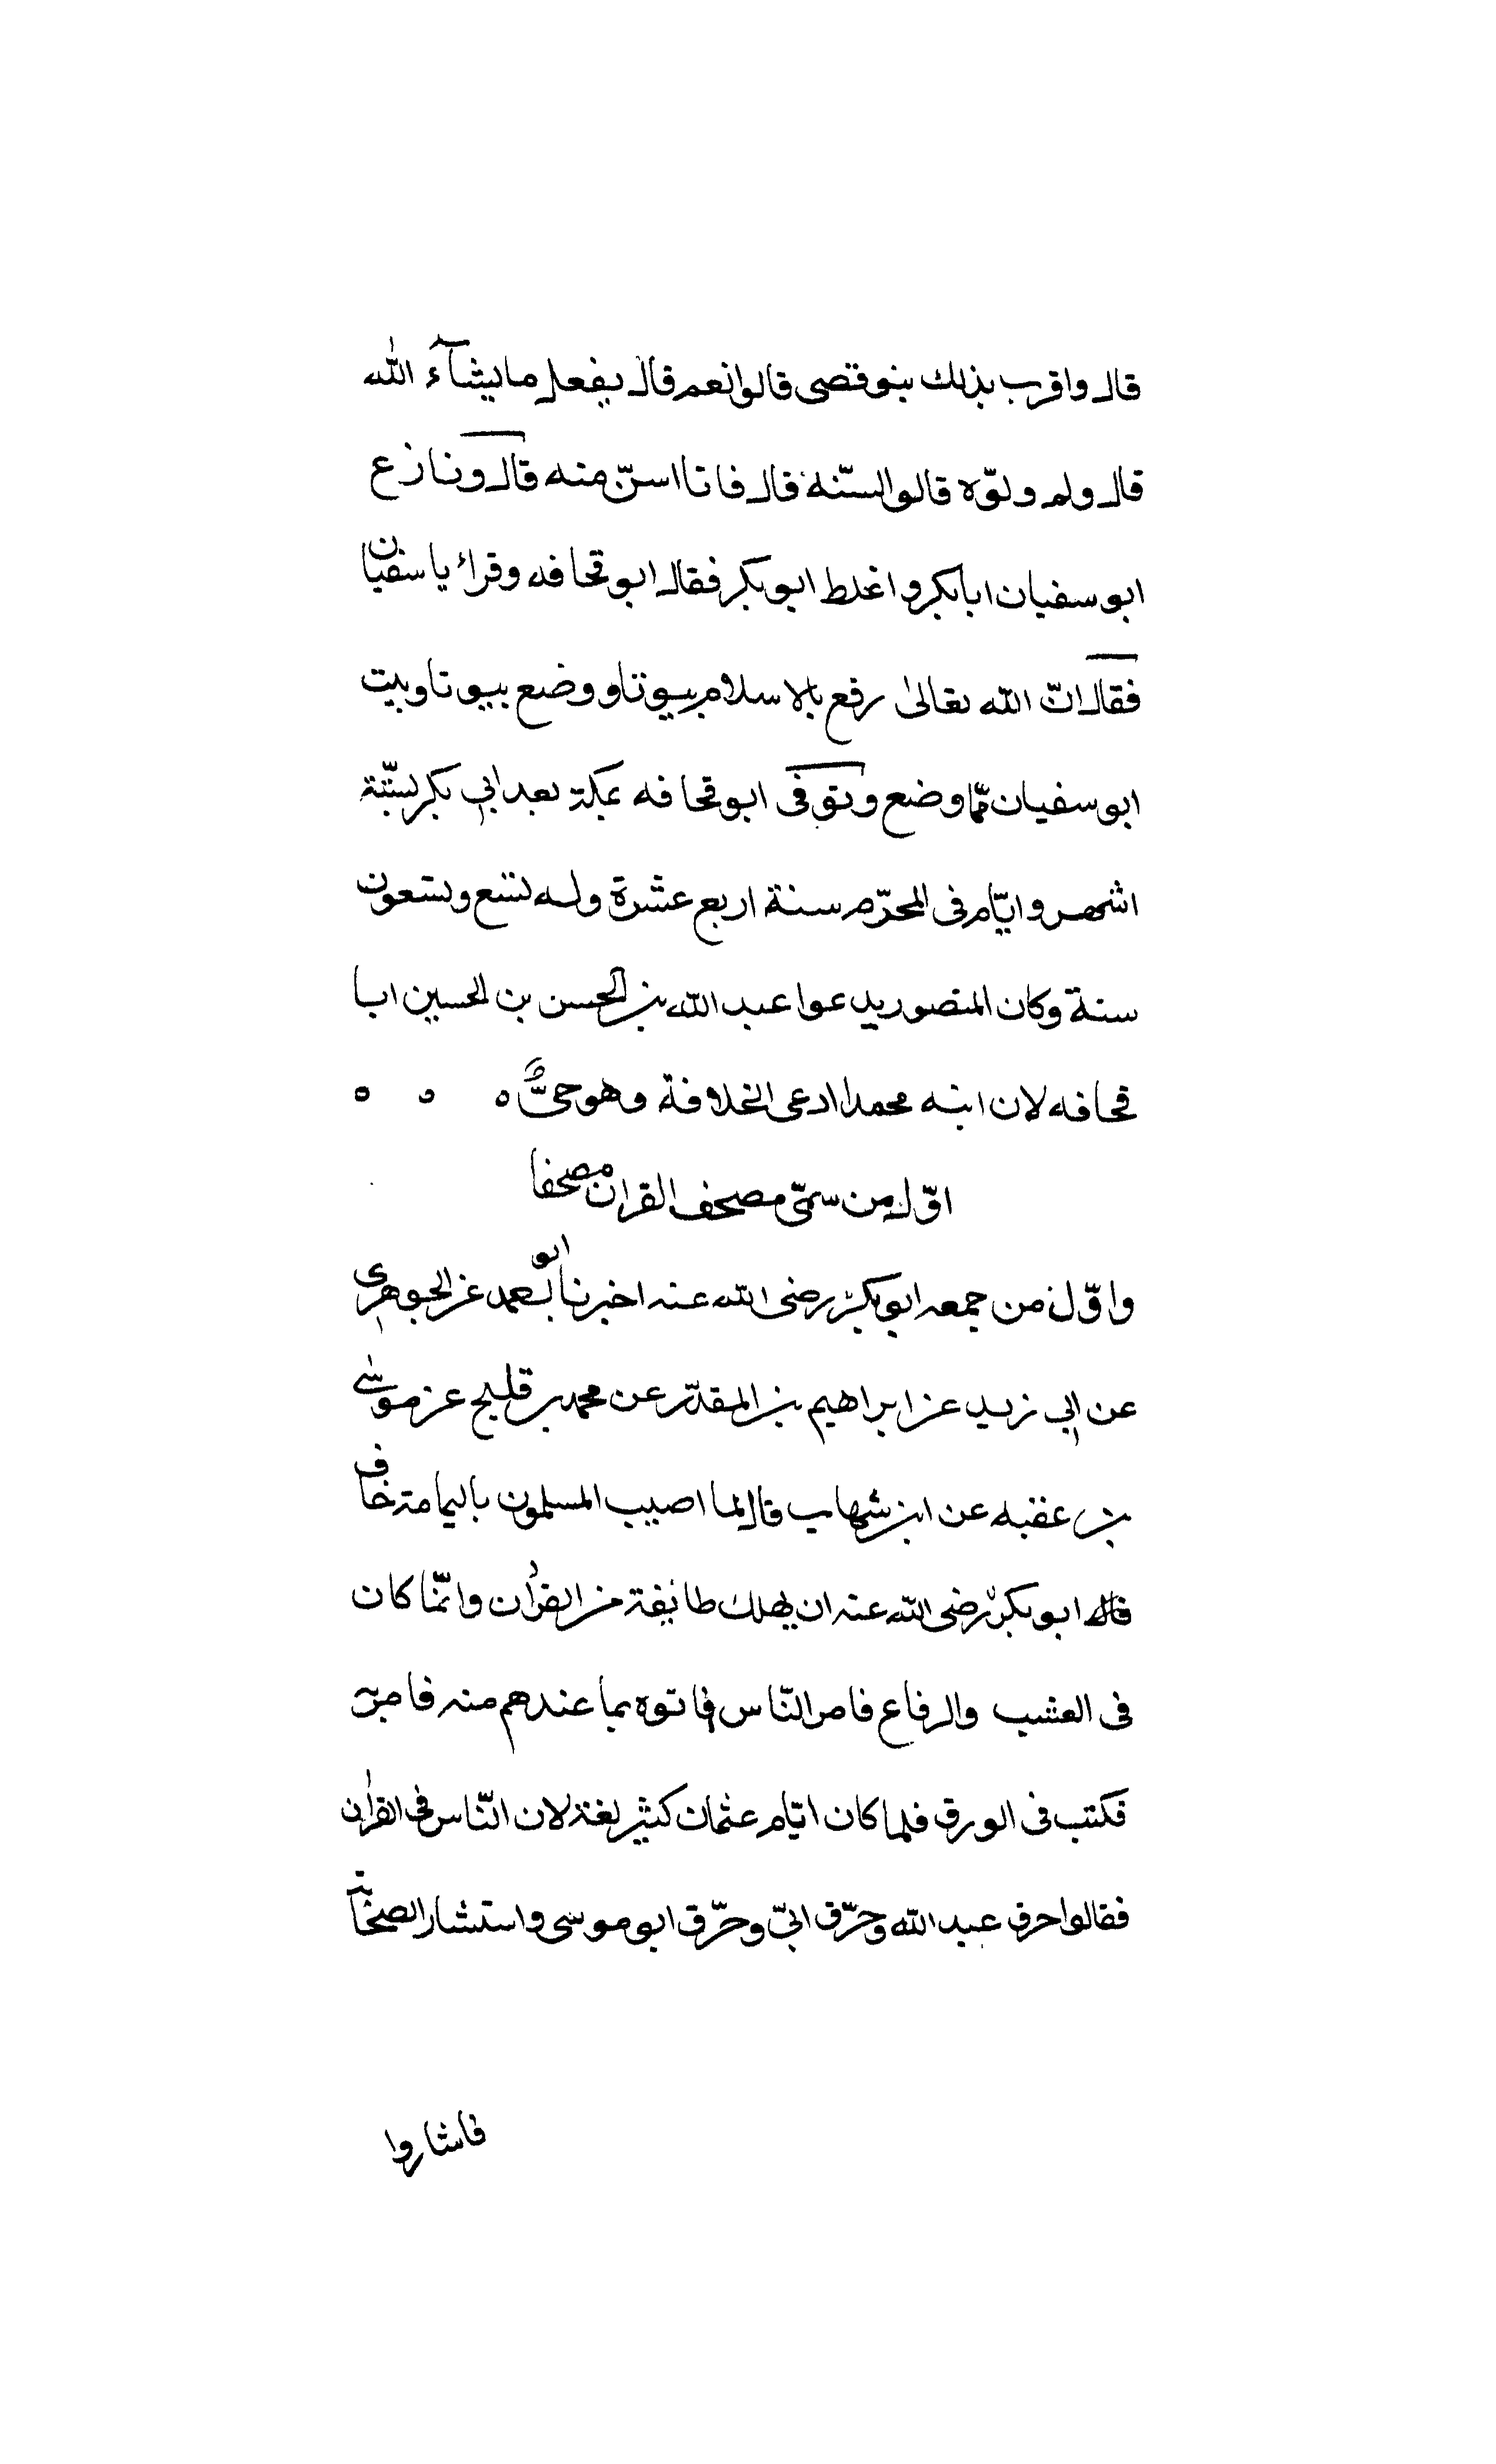 قال واقرب بذلك بنو قصى قالوا نعم قال يفعل ما يشآء الله
قال ولم ولوّه قالوا السّنه قال فانا اسنّ منه قال ونازع
ابو سفيان ابا بكر واغلط ابو بكر فقال ابو قحافه وقراء يا سفيان
فقال انّ الله تعالى رفع بالاسلام بيوتا ووضع بيوتا وبيت
ابو سفيان ممّا وضع وتوفى ابو قحافه بمكة بعد ابي بكر بستّة
اشهر وايّام فى المحرّم سنة اربع عشرة وله تسع وتسعون
سنة وكان المنصور يدعوا عبد الله بن الحسن بن الحسين ابا
قحافه لان ابنه محمدا ادعى الخلافة وهو حىٌّ ه ه ه
اوّل من سمّى مصحف القران مصحفا
واوّل من جمعه ابو بكر رضى الله عنه اخبرنا ابو احمد عن الجوهرى
عن ابي زيد عن ابراهيم بن المقدر عن محمد بن قليح عن موسى
بن عقبه عن ابن شهاب قال لما اصيب المسلمون باليمامة خاف
ابو بكر رضى الله عنه ان يهلك طائفة من القران وانّما كان
فى العشب والرفاع فامر النّاس فاتوه بما عندهم منه فامر به
فكتب فى الورق فلما كان ايّام عثمان كثير لغة لان النّاس فى القران
فقالوا حرق عبد الله وحرّق ابىّ وحرّق ابو موسى واستشار الصحابة
فاشاروا